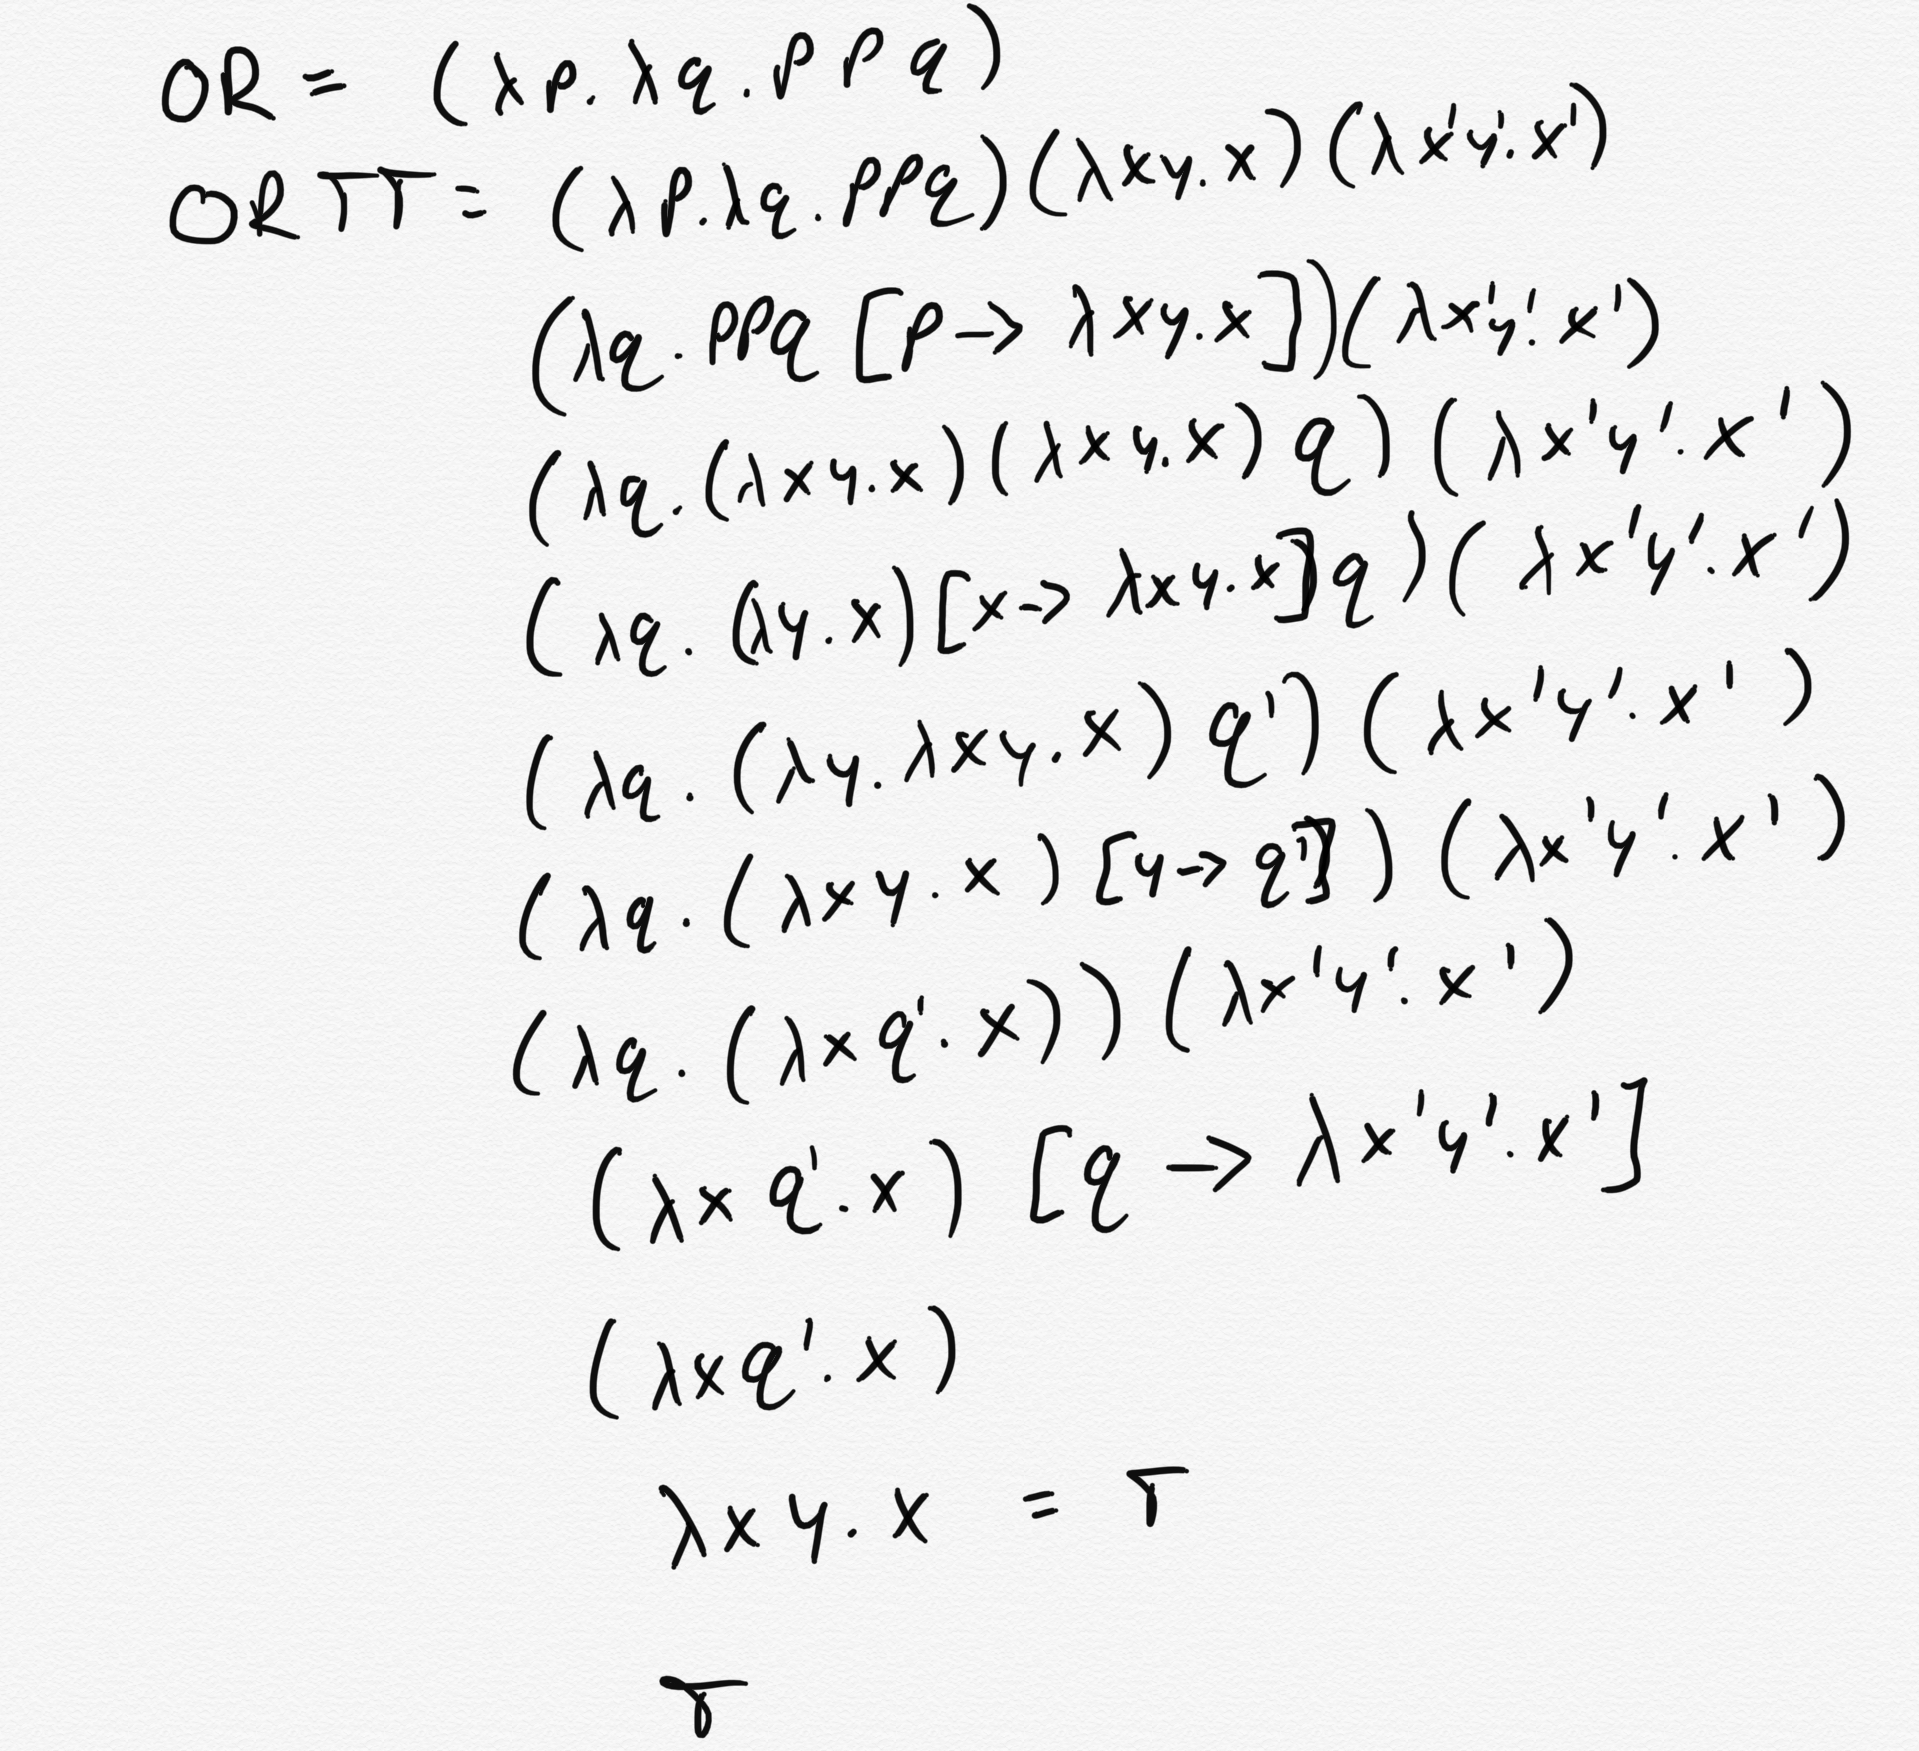 OR = (λp.λq.ppq)
OR TT = (λp.λq.ppq)(λxy.x)(λx'y'.x')
(λq.ppq[p->λxy.x])(λx'y'.x')
(λq.(λxy.x)(λxy.x)q)(λx'y'.x')
(λq.(λy.x)[x->λxy.x]q)(λx'y'.x')
(λq.(λy.λxy.x)q')(λx'y'.x')
(λq.(λxy.x)[y->q'])(λx'y'.x')
(λq.(λxq'.x))(λx'y'.x')
(λxq'.x)[q->λx'y'.x']
(λxq'.x)
λxy.x = T
T